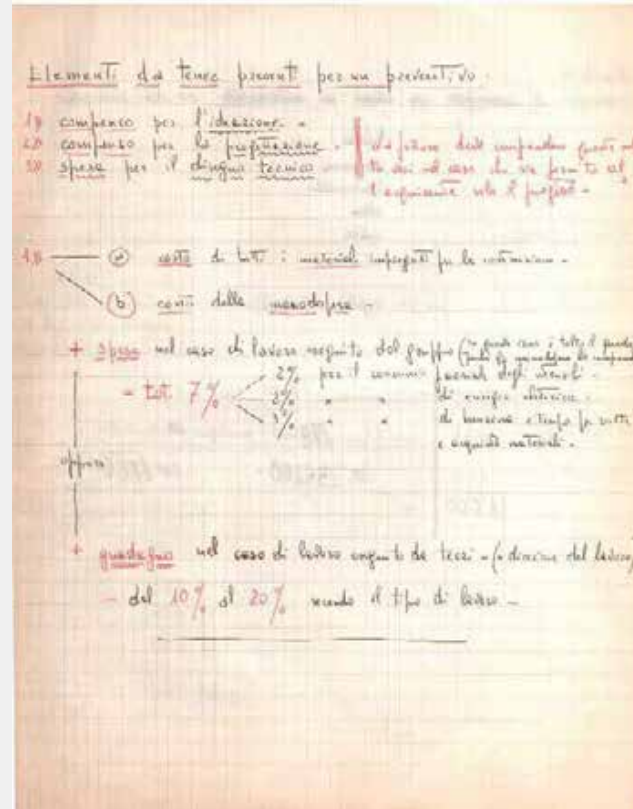 Elementi da tenere presenti per un preventivo.
1) compenso per l'ideazione.
2) compenso per la progettazione.
3) spese per il disegno tecnico
la fattura deve comprendere queste
nel caso che sia fornito al
l'acquirente solo il progetto.
a costo di tutti i materiali impiegati per la costruzione.
b costi della manodopera.
+ spese nel caso di lavoro eseguito dal gruppo
= tot. 7%
2% per il consumo parziale degli utensili.
2% " " di energia elettrica.
3% " " di benzina e tempo per
e acquisto materiali.
oppure
+ guadagno nel caso di lavoro eseguito da terzi = (= direzione del lavoro)
- dal 10% al 20% secondo il tipo di lavoro -